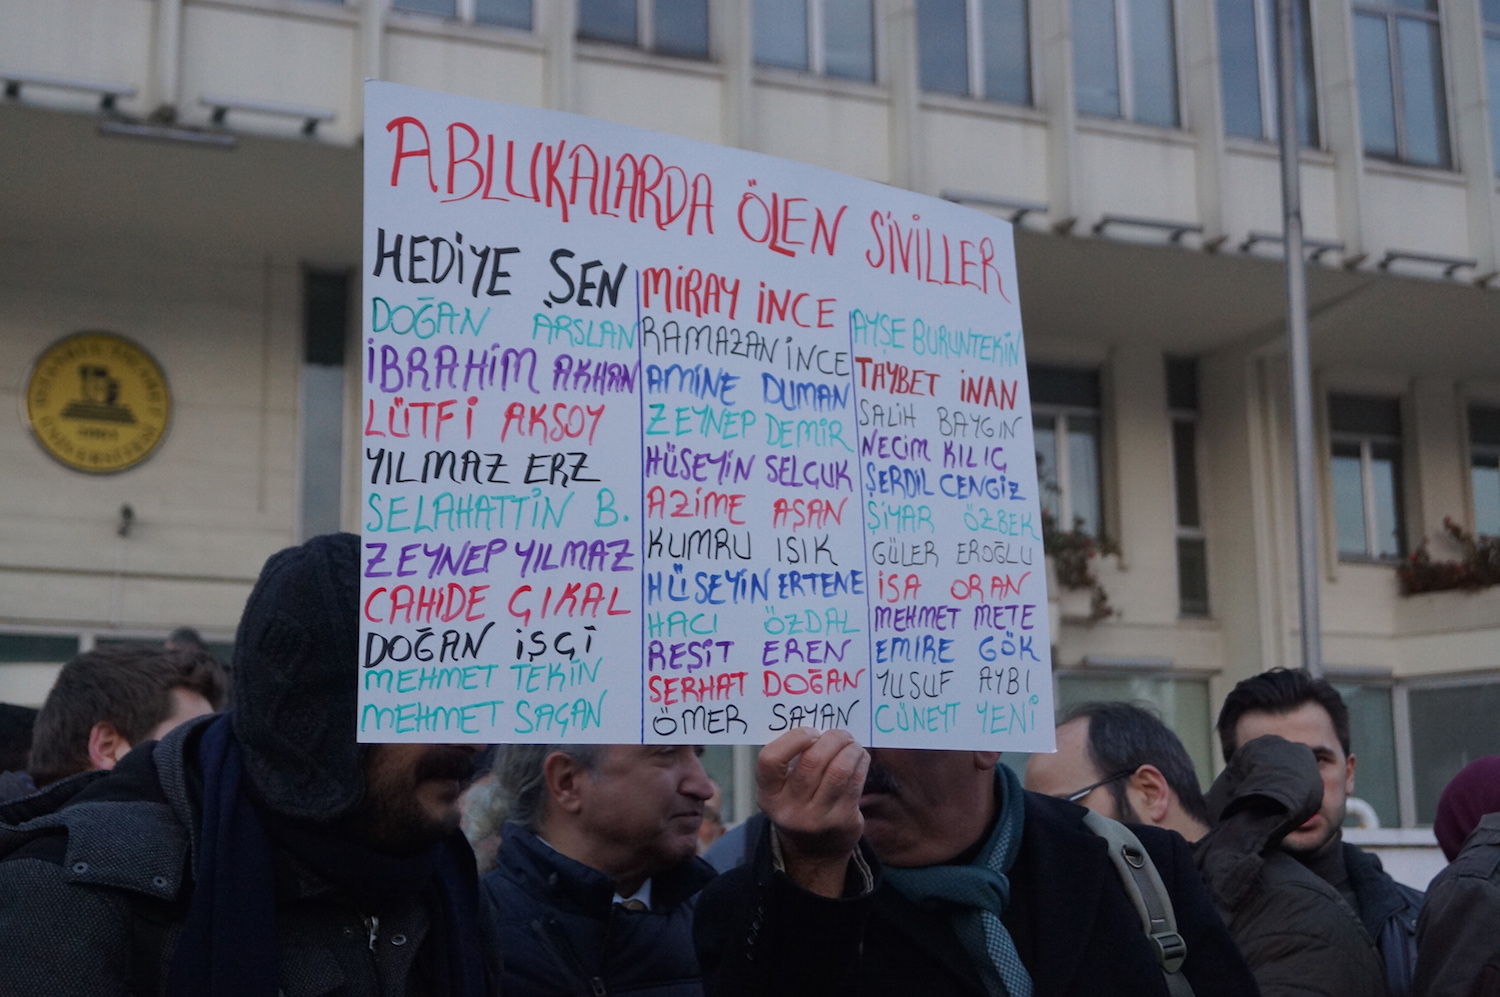 ABLUKALARDA ÖLEN SİVİLLER
HEDİYE ŞEN
DOĞAN ARSLAN
İBRAHİM AKHAN
LÜTFİ AKSOY
YILMAZ ERZ
SELAHATTİN B.
ZEYNEP YILMAZ
CAHİDE ÇIKAL
DOĞAN İŞÇİ
MEHMET TEKİN
MEHMET SAÇAN
MİRAY İNCE
RAMAZAN İNCE
AMİNE DUMAN
ZEYNEP DEMİR
HÜSEYİN SELÇUK
AZİME AŞAN
KUMRU IŞIK
HÜSEYİN ERTENE
HACI ÖZDAL
REŞİT EREN
SERHAT DOĞAN
ÖMER SAYAN
AYŞE BURUNTEKİN
TAYBET İNAN
SALİH BAYGIN
NECİM KILIÇ
ŞERDİL CENGİZ
ŞİYAR ÖZBEK
GÜLER EROĞLU
İSA ORAN
MEHMET METE
EMİRE GÖK
YUSUF AYBİ
CÜNEYT YENİ